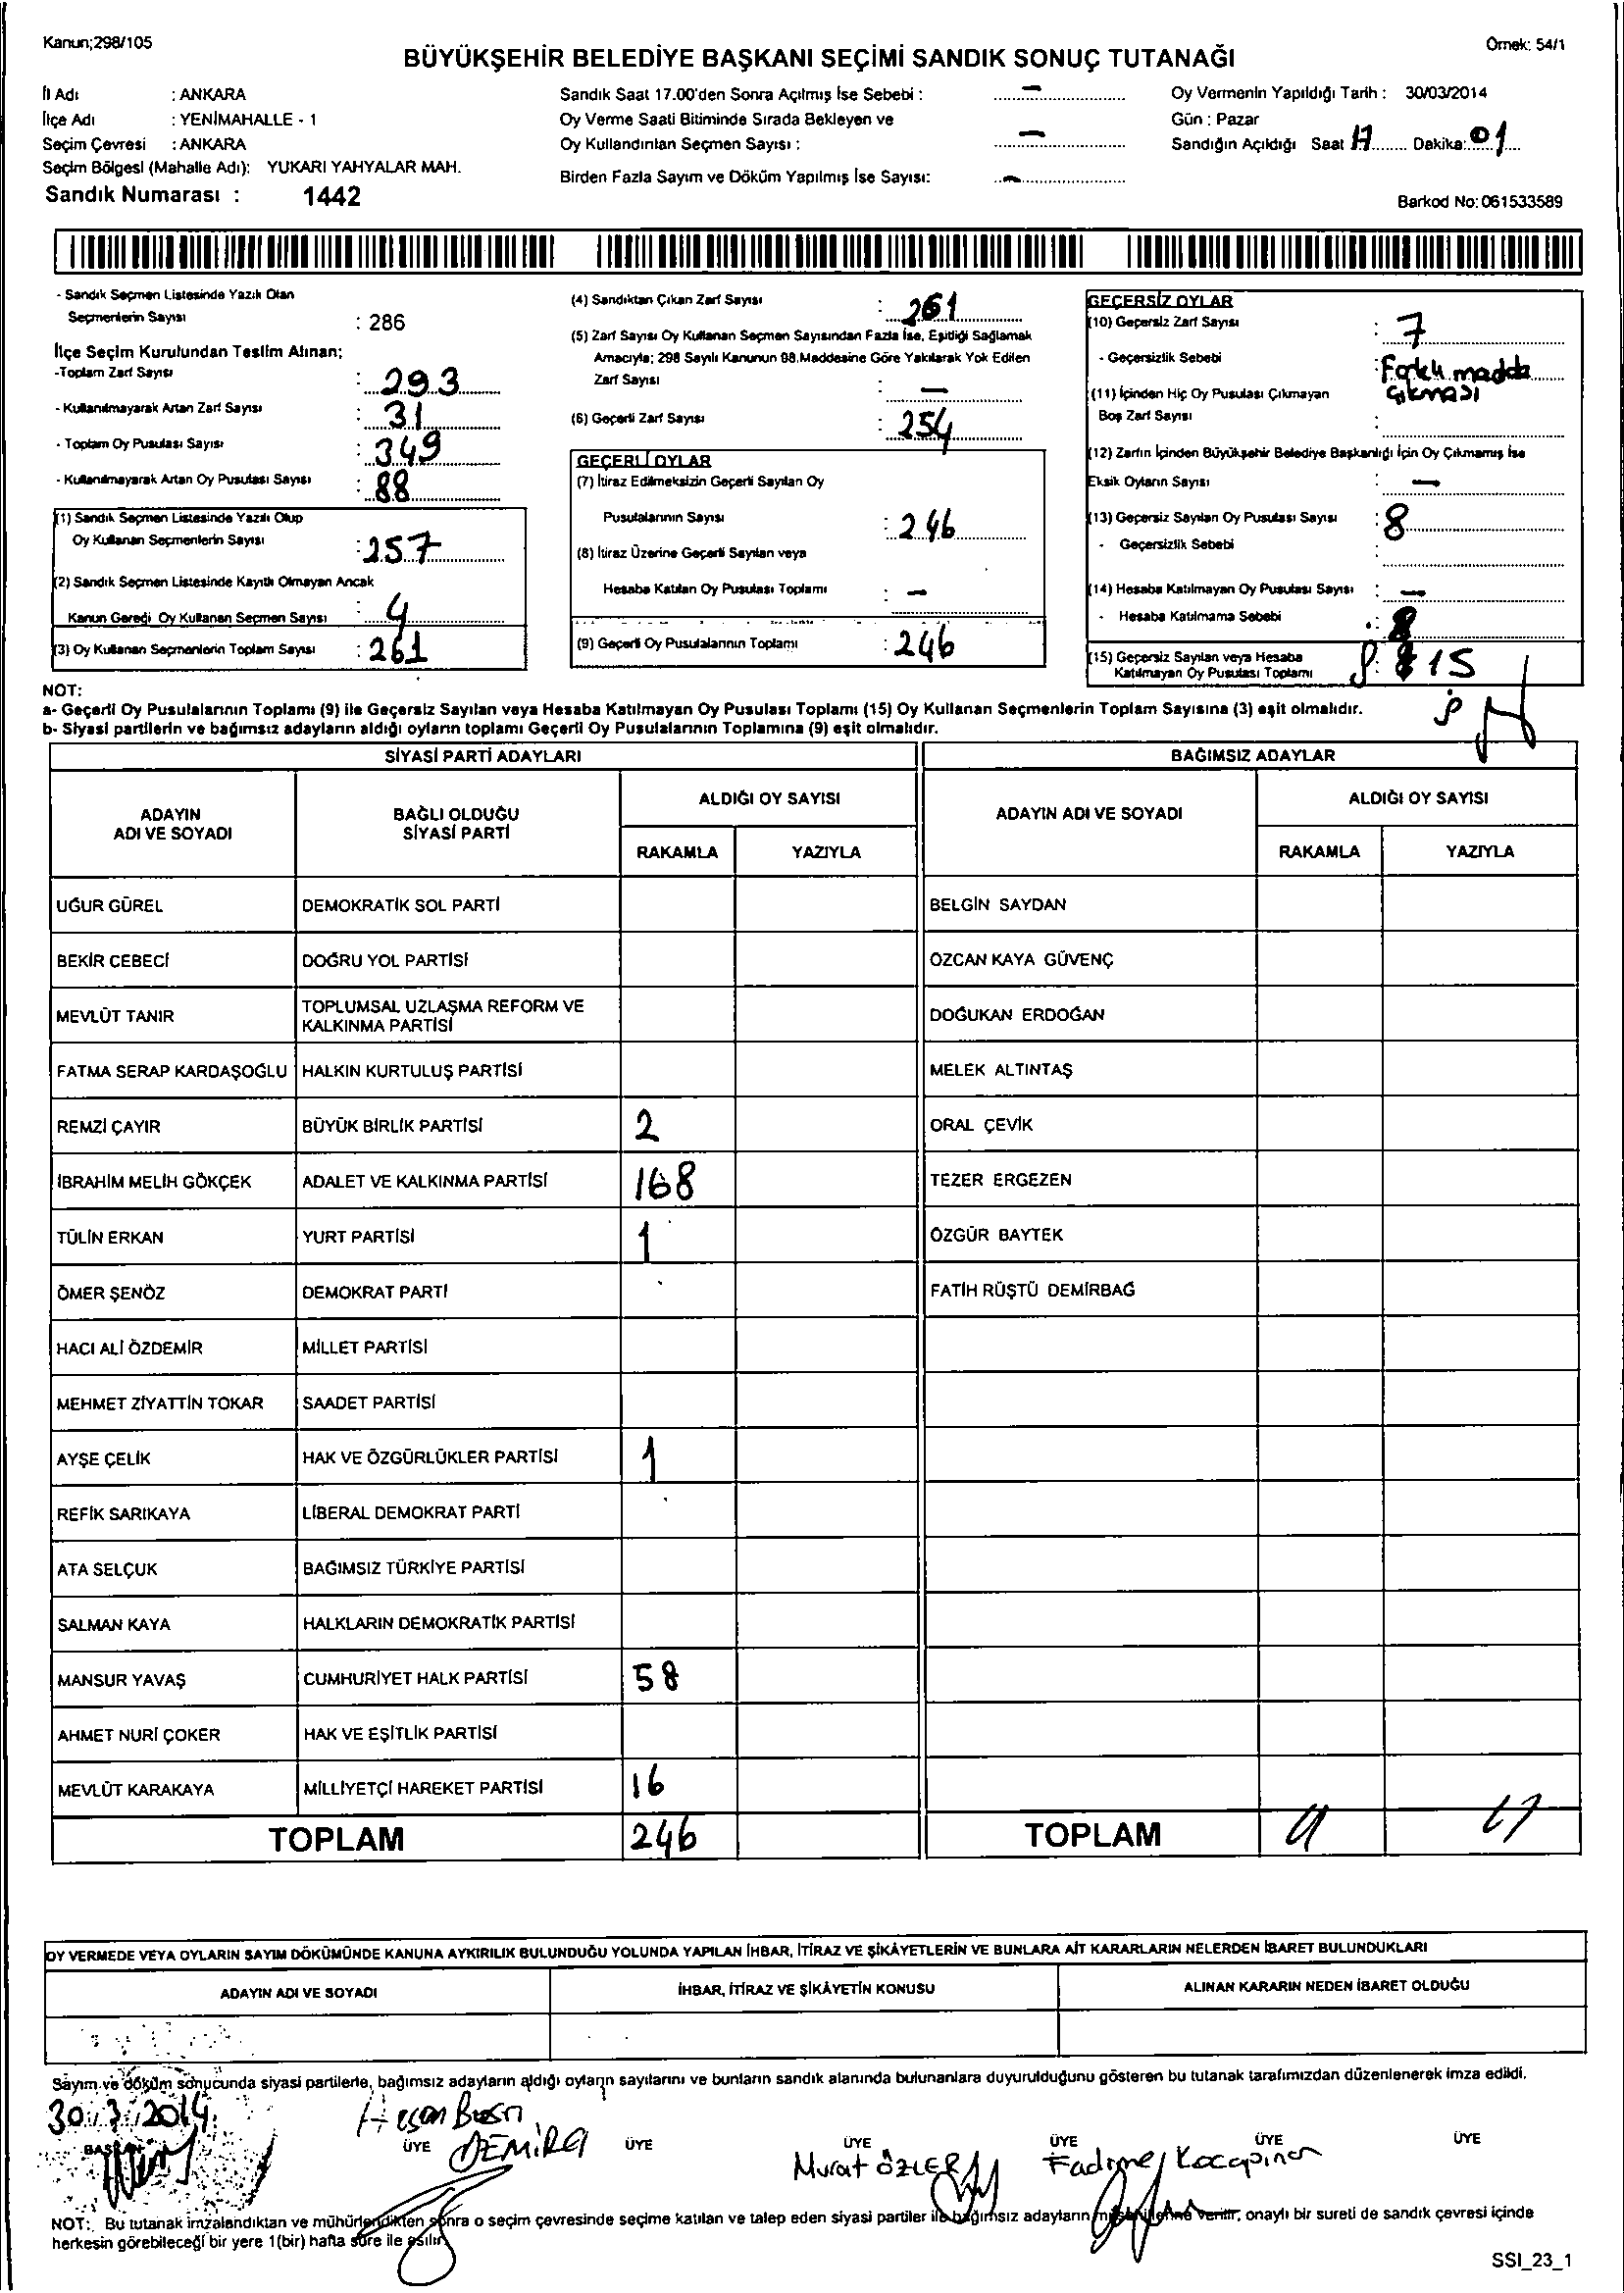 Kanun;298/105
Örnek: 54/1
BÜYÜKŞEHİR BELEDİYE BAŞKANI SEÇİMİ SANDIK SONUÇ TUTANAĞI
İl Adı : ANKARA
İlçe Adı : YENİMAHALLE - 1
Seçim Çevresi : ANKARA
Seçim Bölgesi (Mahalle Adı): YUKARI YAHYALAR MAH.
Sandık Numarası : 1442
Sandık Saat 17.00'den Sonra Açılmış İse Sebebi : –
Oy Verme Saati Bitiminde Sırada Bekleyen ve
Oy Kullandırılan Seçmen Sayısı : –
Birden Fazla Sayım ve Döküm Yapılmış İse Sayısı: –
Oy Vermenin Yapıldığı Tarih : 30/03/2014
Gün : Pazar
Sandığın Açıldığı Saat 17 Dakika: 01
Barkod No: 061533589
- Sandık Seçmen Listesinde Yazılı Olan
Seçmenlerin Sayısı : 286
İlçe Seçim Kurulundan Teslim Alınan;
-Toplam Zarf Sayısı : 293
- Kullanılmayarak Artan Zarf Sayısı : 31
- Toplam Oy Pusulası Sayısı : 349
- Kullanılmayarak Artan Oy Pusulası Sayısı : 88
(1) Sandık Seçmen Listesinde Yazılı Olup
Oy Kullanan Seçmenlerin Sayısı : 257
(2) Sandık Seçmen Listesinde Kayıtlı Olmayan Ancak
Kanun Gereği Oy Kullanan Seçmen Sayısı : 4
(3) Oy Kullanan Seçmenlerin Toplam Sayısı : 261
(4) Sandıktan Çıkan Zarf Sayısı : 261
(5) Zarf Sayısı Oy Kullanan Seçmen Sayısından Fazla İse, Eşitliği Sağlamak
Amacıyla; 298 Sayılı Kanunun 98.Maddesine Göre Yakılarak Yok Edilen
Zarf Sayısı : –
(6) Geçerli Zarf Sayısı : 254
GEÇERLİ OYLAR
(7) İtiraz Edilmeksizin Geçerli Sayılan Oy
Pusulalarının Sayısı : 246
(8) İtiraz Üzerine Geçerli Sayılan veya
Hesaba Katılan Oy Pusulası Toplamı : –
(9) Geçerli Oy Pusulalarının Toplamı : 246
GEÇERSİZ OYLAR
(10) Geçersiz Zarf Sayısı : 7
- Geçersizlik Sebebi : Farklı madde
çıkması
(11) İçinden Hiç Oy Pusulası Çıkmayan
Boş Zarf Sayısı :
(12) Zarfın İçinden Büyükşehir Belediye Başkanlığı İçin Oy Çıkmamış İse
Eksik Oyların Sayısı : –
(13) Geçersiz Sayılan Oy Pusulası Sayısı : 8
- Geçersizlik Sebebi :
(14) Hesaba Katılmayan Oy Pusulası Sayısı : –
- Hesaba Katılmama Sebebi : 8
(15) Geçersiz Sayılan veya Hesaba
Katılmayan Oy Pusulası Toplamı : 15
NOT:
a- Geçerli Oy Pusulalarının Toplamı (9) ile Geçersiz Sayılan veya Hesaba Katılmayan Oy Pusulası Toplamı (15) Oy Kullanan Seçmenlerin Toplam Sayısına (3) eşit olmalıdır.
b- Siyasi partilerin ve bağımsız adayların aldığı oyların toplamı Geçerli Oy Pusulalarının Toplamına (9) eşit olmalıdır.
SİYASİ PARTİ ADAYLARI
BAĞIMSIZ ADAYLAR
ADAYIN
ADI VE SOYADI
BAĞLI OLDUĞU
SİYASİ PARTİ
ALDIĞI OY SAYISI
RAKAMLA YAZIYLA
ADAYIN ADI VE SOYADI
ALDIĞI OY SAYISI
RAKAMLA YAZIYLA
UĞUR GÜREL DEMOKRATİK SOL PARTİ BELGİN SAYDAN
BEKİR CEBECİ DOĞRU YOL PARTİSİ ÖZCAN KAYA GÜVENÇ
MEVLÜT TANIR TOPLUMSAL UZLAŞMA REFORM VE
KALKINMA PARTİSİ DOĞUKAN ERDOĞAN
FATMA SERAP KARDAŞOĞLU HALKIN KURTULUŞ PARTİSİ MELEK ALTINTAŞ
REMZİ ÇAYIR BÜYÜK BİRLİK PARTİSİ 2 ORAL ÇEVİK
İBRAHİM MELİH GÖKÇEK ADALET VE KALKINMA PARTİSİ 168 TEZER ERGEZEN
TÜLİN ERKAN YURT PARTİSİ 1 ÖZGÜR BAYTEK
ÖMER ŞENÖZ DEMOKRAT PARTİ FATİH RÜŞTÜ DEMİRBAĞ
HACI ALİ ÖZDEMİR MİLLET PARTİSİ
MEHMET ZİYATTİN TOKAR SAADET PARTİSİ
AYŞE ÇELİK HAK VE ÖZGÜRLÜKLER PARTİSİ 1
REFİK SARIKAYA LİBERAL DEMOKRAT PARTİ
ATA SELÇUK BAĞIMSIZ TÜRKİYE PARTİSİ
SALMAN KAYA HALKLARIN DEMOKRATİK PARTİSİ
MANSUR YAVAŞ CUMHURİYET HALK PARTİSİ 58
AHMET NURİ ÇOKER HAK VE EŞİTLİK PARTİSİ
MEVLÜT KARAKAYA MİLLİYETÇİ HAREKET PARTİSİ 16
TOPLAM 246 TOPLAM
OY VERMEDE VEYA OYLARIN SAYIM DÖKÜMÜNDE KANUNA AYKIRILIK BULUNDUĞU YOLUNDA YAPILAN İHBAR, İTİRAZ VE ŞİKÂYETLERİN VE BUNLARA AİT KARARLARIN NELERDEN İBARET BULUNDUKLARI
ADAYIN ADI VE SOYADI İHBAR, İTİRAZ VE ŞİKÂYETİN KONUSU ALINAN KARARIN NEDEN İBARET OLDUĞU
Sayım ve döküm sonucunda siyasi partilerle, bağımsız adayların aldığı oyların sayılarını ve bunların sandık alanında bulunanlara duyurulduğunu gösteren bu tutanak tarafımızdan düzenlenerek imza edildi.
30.3.2014
Hasan Basri
BAŞKAN ÜYE DEMİRCİ ÜYE ÜYE ÜYE ÜYE ÜYE
Murat ÖZLER Fadime Kocapınar
NOT: Bu tutanak imzalandıktan ve mühürlendikten sonra o seçim çevresinde seçime katılan ve talep eden siyasi partiler ile bağımsız adayların müşahitlerine verilir, onaylı bir sureti de sandık çevresi içinde
herkesin görebileceği bir yere 1(bir) hafta süre ile asılır.
SSI_23_1